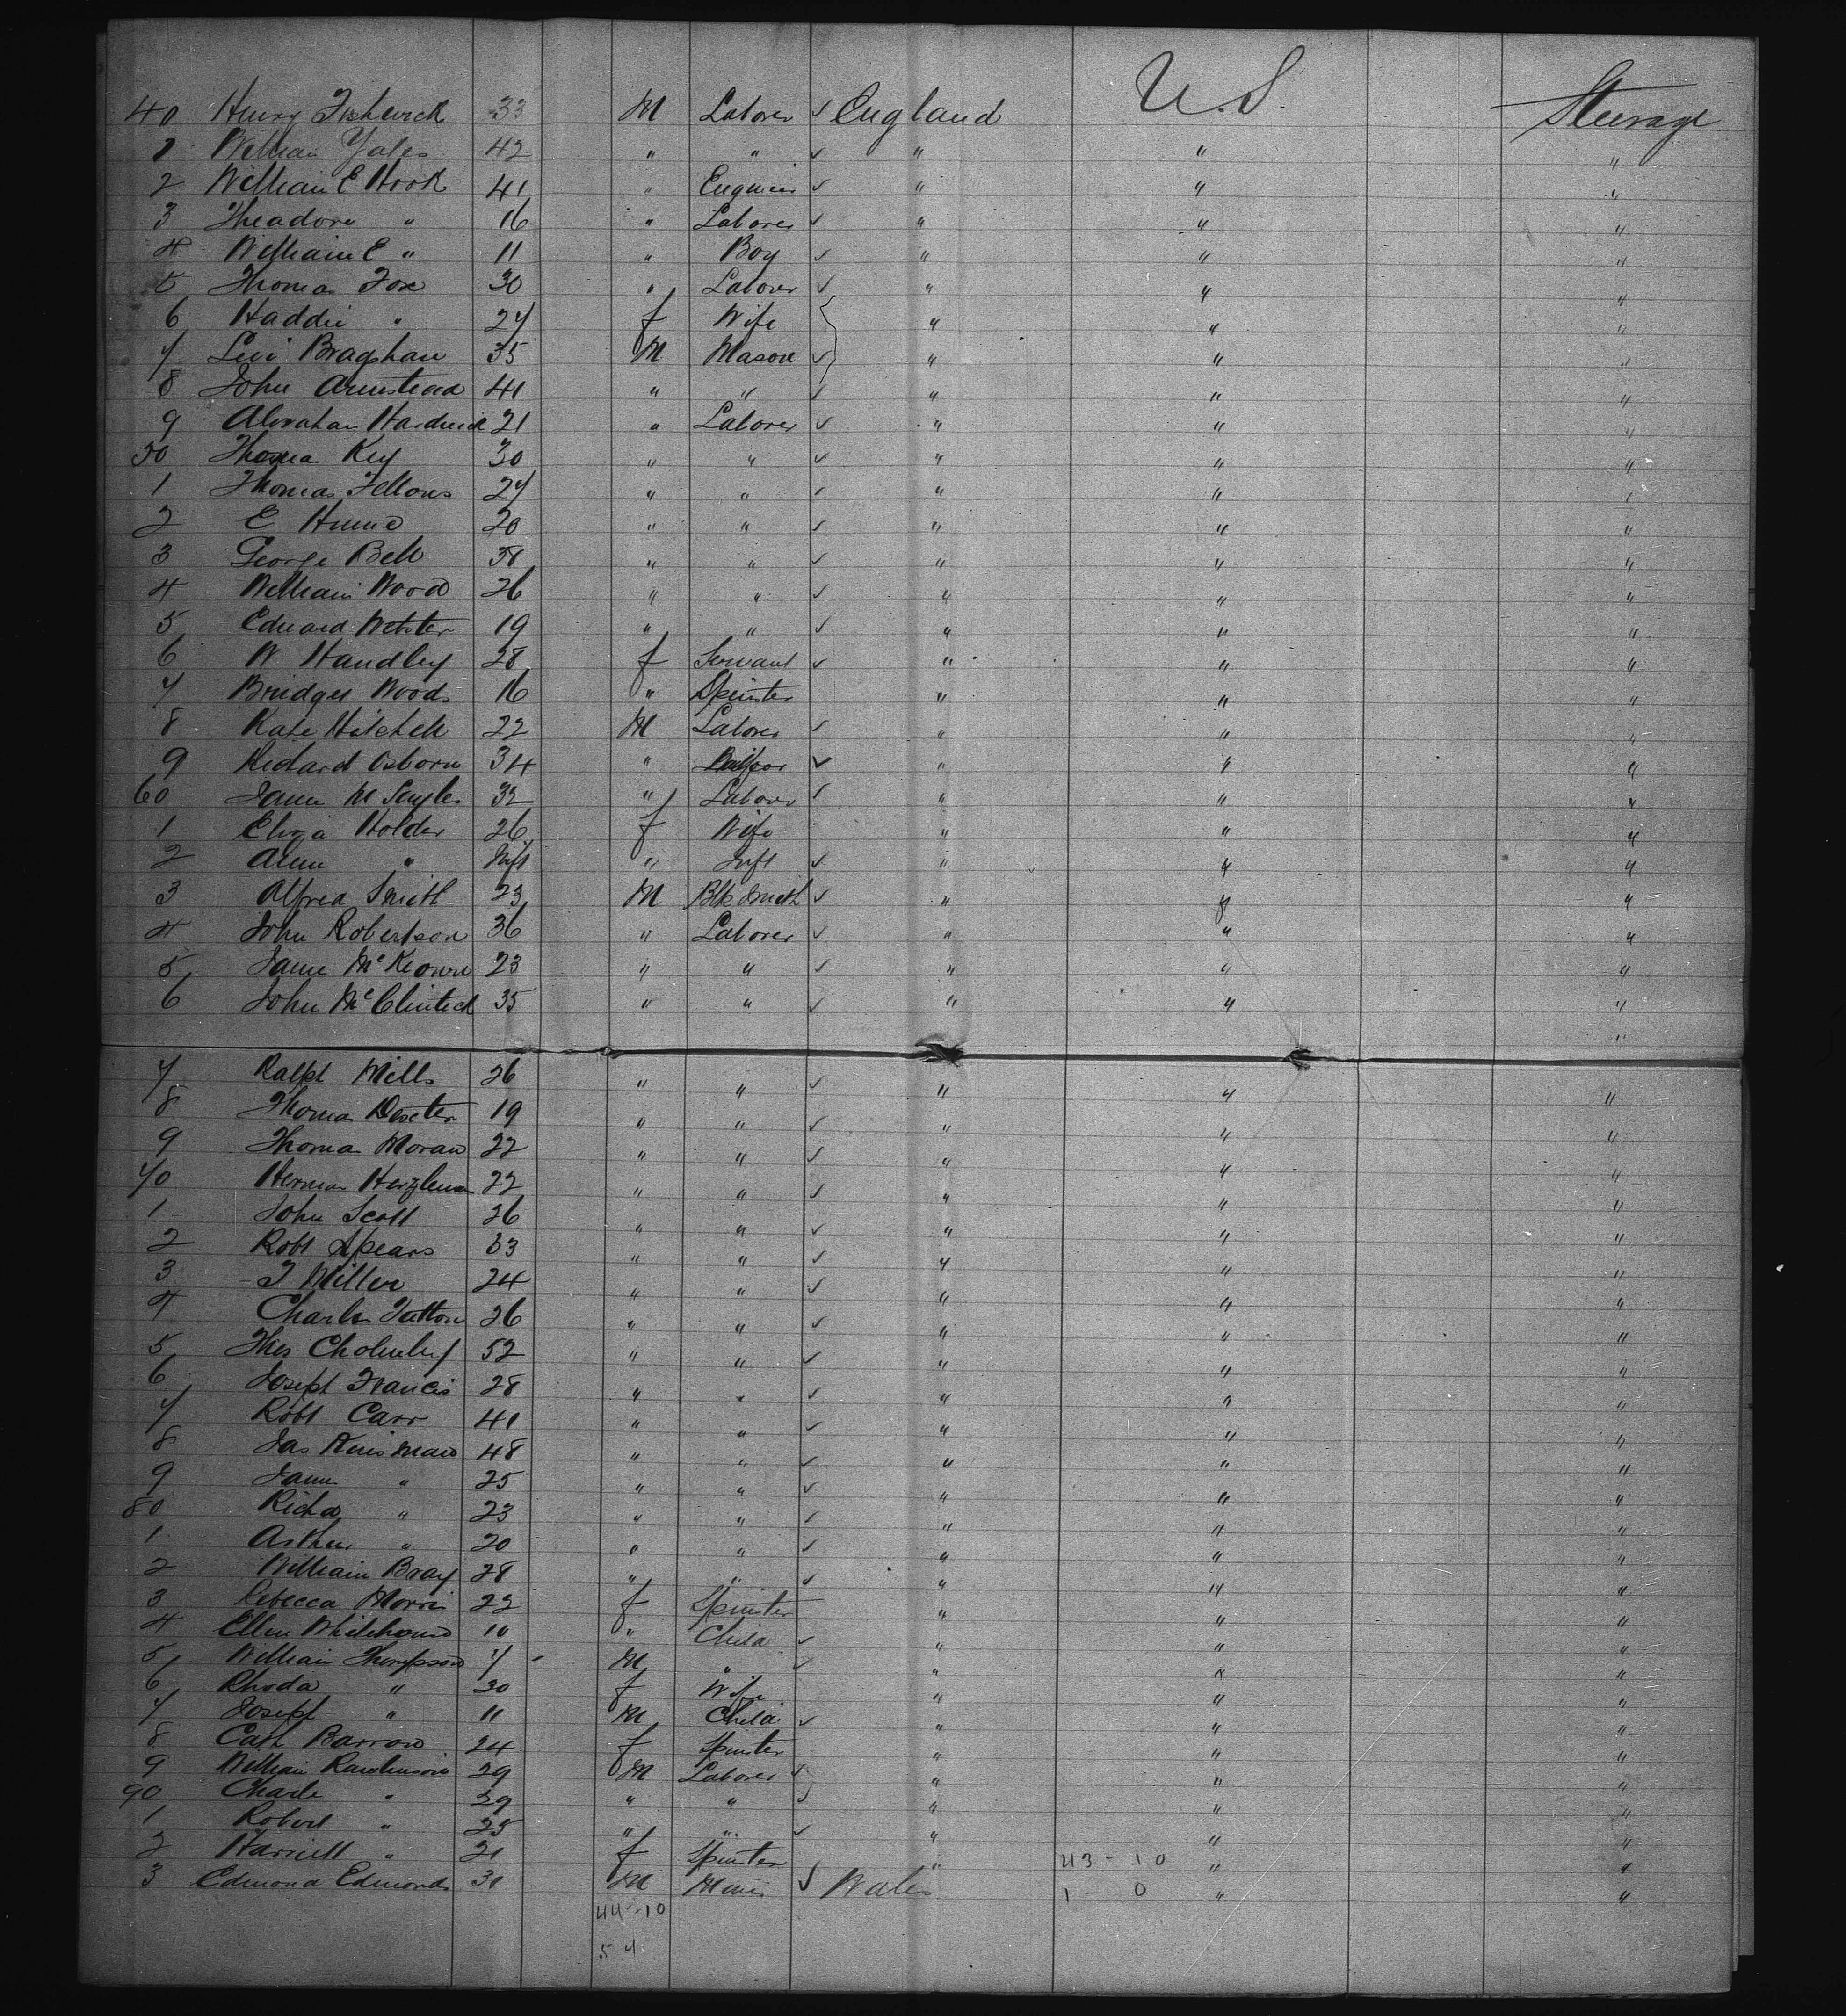 U.S.
40 Henry Fishwick 33 M Laborer ✓ England Steerage
1 William Yates 42 " " ✓ " " "
2 William E Hook 41 " Engineer ✓ " " "
3 Theadore " 16 " Laborer ✓ " " "
4 William E " 11 " Boy ✓ " " "
5 Thomas Fox 30 " Laborer ✓ " " "
6 Haddie " 27 f Wife " " "
7 Levi Braghan 35 M Mason ✓ " " "
8 John Armstead 41 " " ✓ " " "
9 Abraham Hardwick 21 " Laborer ✓ " " "
50 Thomas Key 30 " " ✓ " " "
1 Thomas Fellows 27 " " ✓ " " "
2 E Hume 20 " " ✓ " " "
3 George Bell 38 " " ✓ " " "
4 William Wood 26 " " ✓ " " "
5 Edward Webster 19 " " ✓ " " "
6 W Handley 28 f Servant ✓ " " "
7 Bridget Woods 16 " Spinster " " "
8 Kate Hitchell 22 M Laborer ✓ " " "
9 Richard Osborn 34 " ✓ " " "
60 James M 32 " Laborer ✓ " " "
1 Eliza Holder 26 f Wife " " "
2 Ann " Inft " Inft ✓ " " "
3 Alfred Smith 23 M Blksmith ✓ " " "
4 John Robertson 36 " Laborer ✓ " " "
5 James McKeown 23 " " ✓ " " "
6 John McClintock 35 " " ✓ " " "
"
7 Ralph Mills 26 " " ✓ " " "
8 Thomas Dexter 19 " " ✓ " " "
9 Thomas Moran 22 " " ✓ " " "
70 Herman 22 " " ✓ " " "
1 John Scott 26 " " ✓ " " "
2 Robt Spears 33 " " ✓ " " "
3 T Miller 24 " " ✓ " " "
4 Charles Tutton 26 " " ✓ " " "
5 Thos 52 " " ✓ " " "
6 Joseph Francis 28 " " ✓ " " "
7 Robt Carr 41 " " ✓ " " "
8 Jas Kinsman 48 " " ✓ " " "
9 James " 25 " " ✓ " " "
80 Richd " 23 " " ✓ " " "
1 Arthur " 20 " " ✓ " " "
2 William Bray 28 " " ✓ " " "
3 Rebecca Morris 22 f Spinster " " "
4 Ellen Whitehouse 10 " Child ✓ " " "
5 William Thompson 7 M " ✓ " " "
6 Rhoda " 30 f Wife " " "
7 Joseph " 11 M Child ✓ " " "
8 Cath Barrow 24 f Spinster " " "
9 William Rawlinson 29 M Laborer ✓ " " "
90 Charle " 29 " " ✓ " " "
1 Robert " 25 " " ✓ " " "
2 Harriett " 21 f Spinster " 43 - 10 " "
3 Edmond Edmonds 31 M Miner ✓ Wales 1 - 0 " "
44-10
54